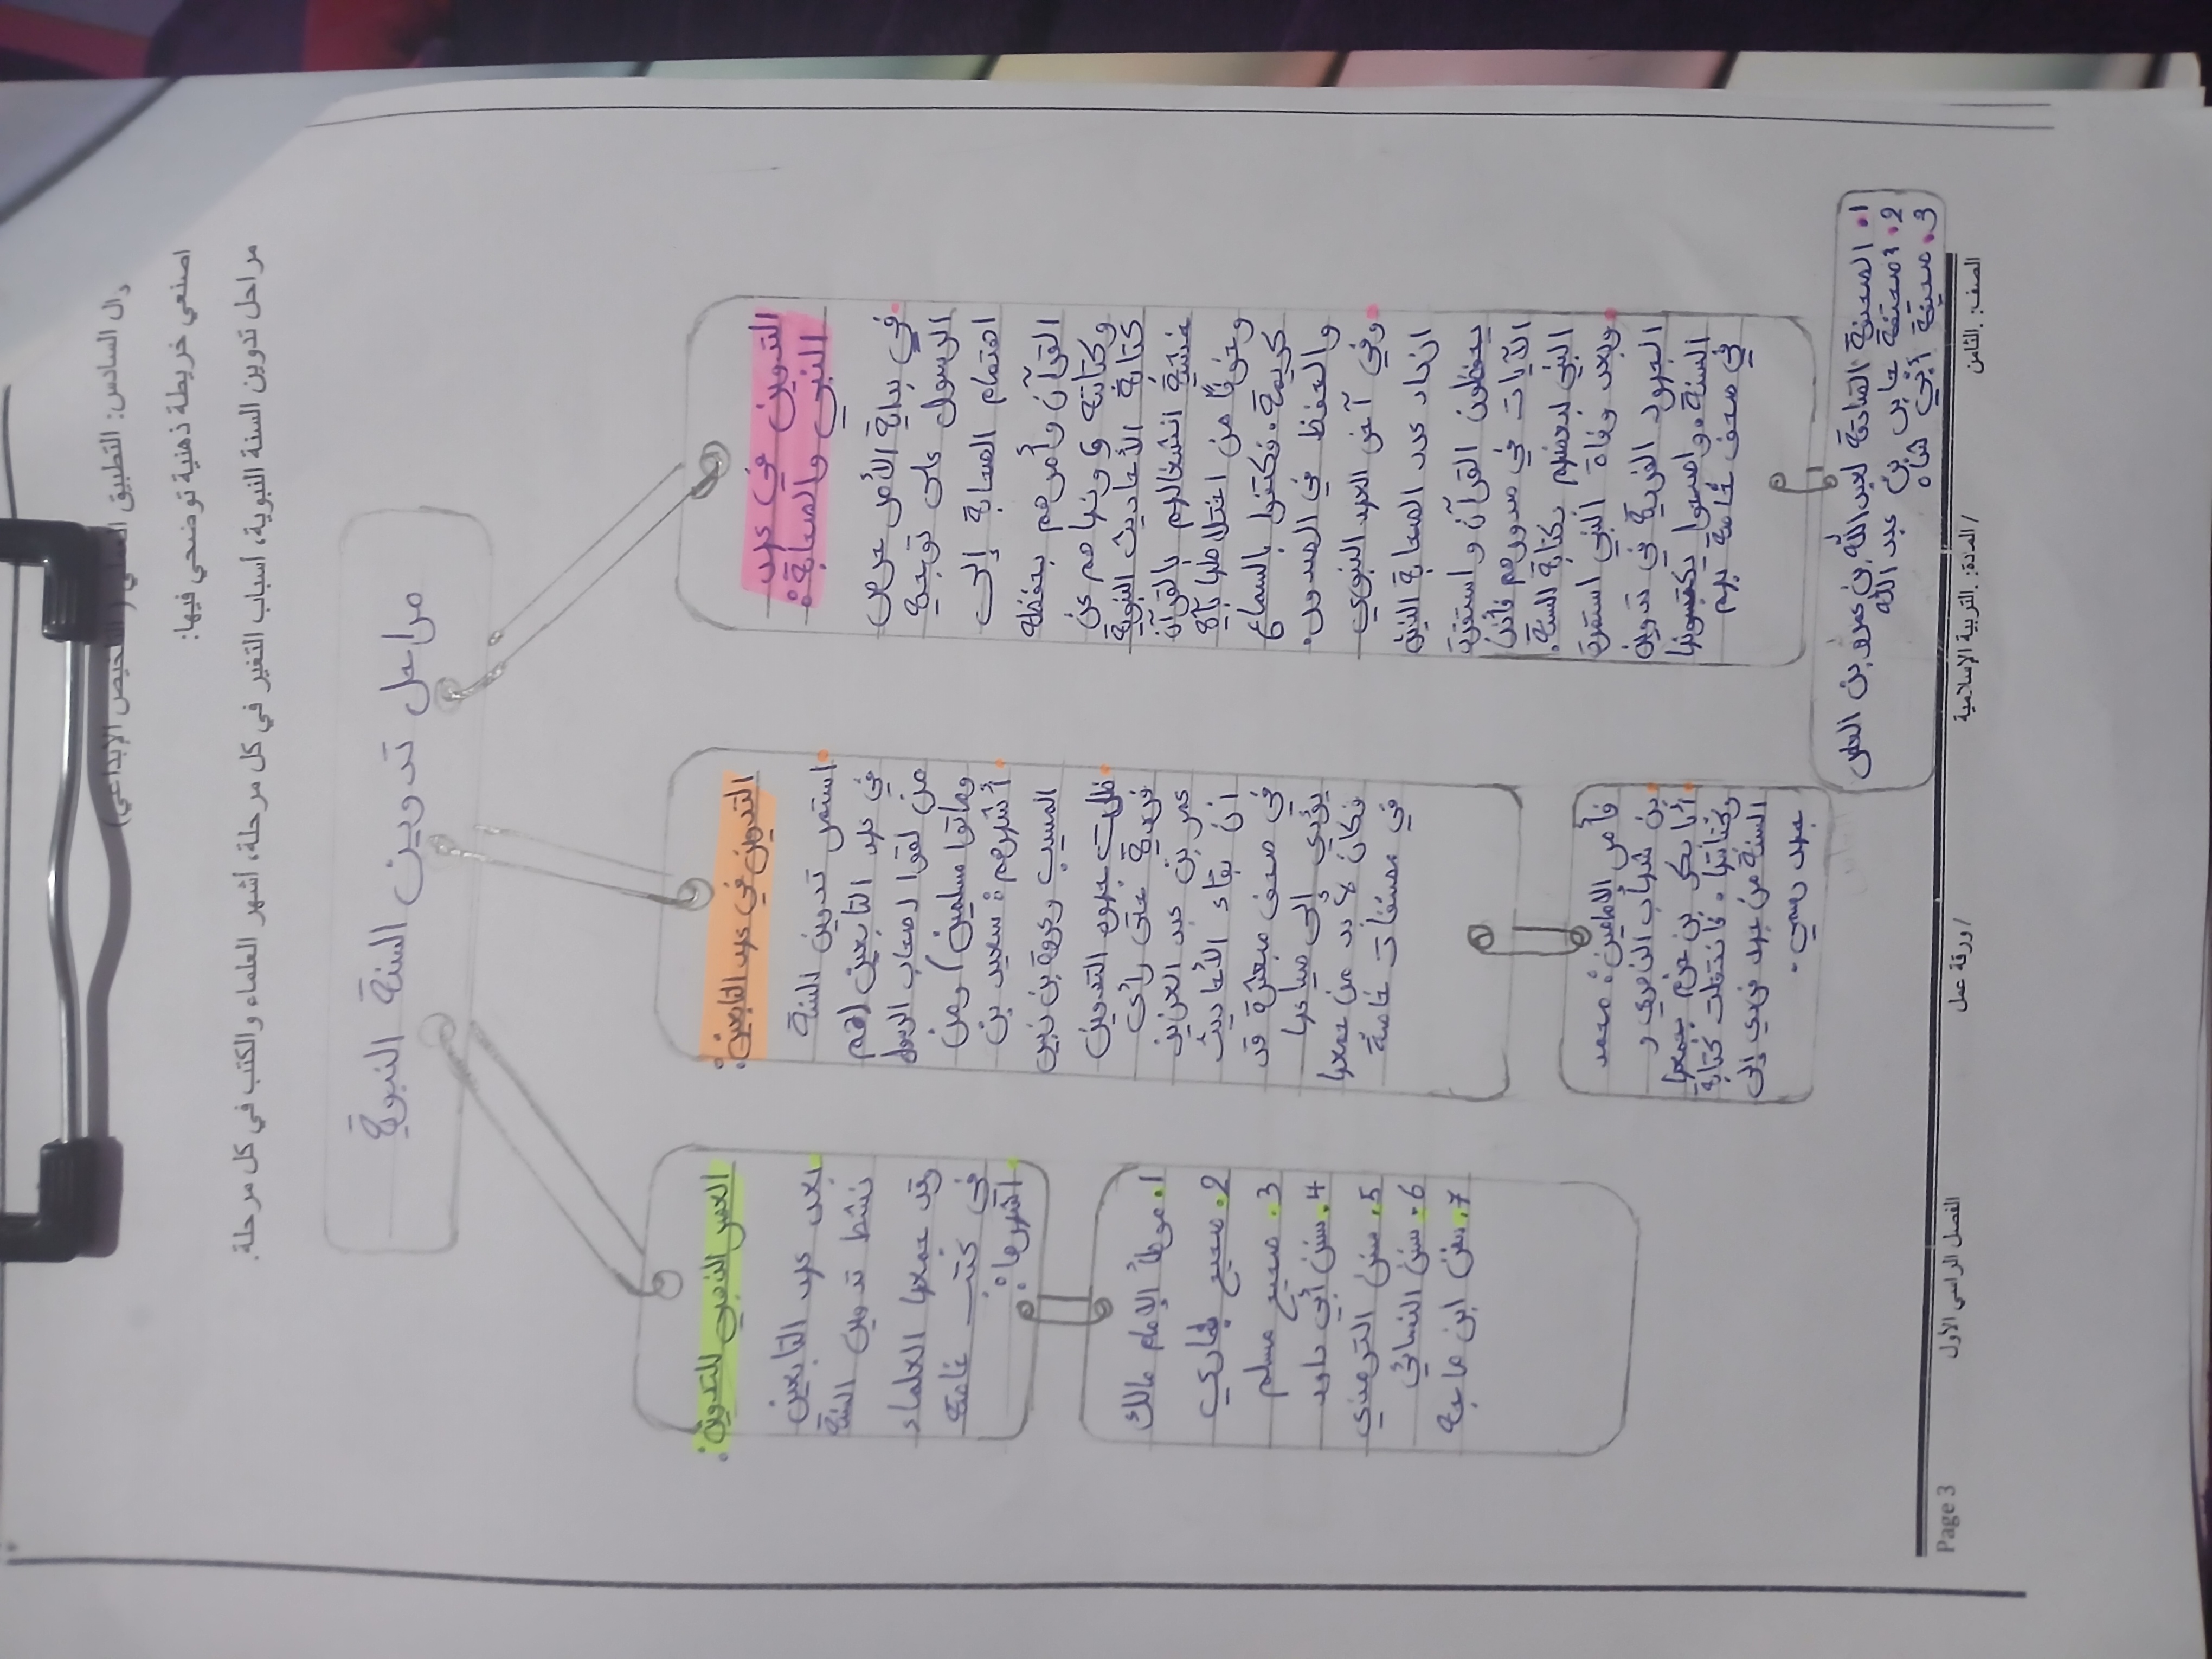 السادس: التطبيق
الإبداعي)
اصنعي خريطة ذهنية توضحي فيها:
مراحل تدوين السنة النبوية، أسباب التغير في كل مرحلة، أشهر العلماء والكتب في كل مرحلة.
مراحل تدوين السنة النبوية
التدوين في عهد
النبي والصحابة:
• في بداية الأمر حرص
الرسول على توجيه
اهتمام الصحابة إلى
القرآن وأمرهم بحفظه
وكتابته ونهاهم عن
كتابة الأحاديث النبوية
خشية انشغالهم بالقرآن
وخوفًا من اختلاطها بآية
كريمة. فكتفوا بالسماع
والحفظ في الصدور.
• وفي آخر العهد النبوي
ازداد عدد الصحابة الذين
يحفظون القرآن واستقرت
الآيات في صدورهم فأذن
النبي لبعضهم بكتابة السنة.
• وبعد وفاة النبي استمرت
الجهود الفردية في تدوين
السنة، واصبحوا يكتبونها
في صحف خاصة بهم
1. الصحيفة الصادقة لعبدالله بن عمرو بن العاص
2. صحيفة جابر بن عبد الله
3. صحيفة أبي شاه
التدوين في عهد التابعين:
• استمر تدوين السنة
في عهد التابعين (هم
من لقوا اصحاب الرسول
وماتوا مسلمين) ومن
• أشهرهم: سعيد بن
المسيب وعروة بن زبير
• ظلت جهود التدوين
فردية حتى رأى
عمر بن عبد العزيز
ان بقاء الأحاديث
في صحف مبعثرة قد
يؤدي إلى ضياعها
فكان لا بد من جمعها
في مصنفات خاصة
فأمر الامامين: محمد
• بن شهاب الزهري و
• أبا بكر بن حزم بجمعها
وكتابتها. فانتقلت كتابة
السنة من جهد فردي إلى
جهد رسمي.
العصر الذهبي للتدوين:
• بعد عهد التابعين
نشط تدوين السنة
وقد جمعها العلماء
في كتب خاصة
• اشهرها:
1. موطأ الإمام مالك
2. صحيح بخاري
3. صحيح مسلم
4. سنن أبي داود
5. سنن الترمذي
6. سنن النسائي
7. سنن ابن ماجه
الصف: .الثامن / المادة: .التربية الإسلامية / ورقة عمل الفصل الراسي الأول Page 3